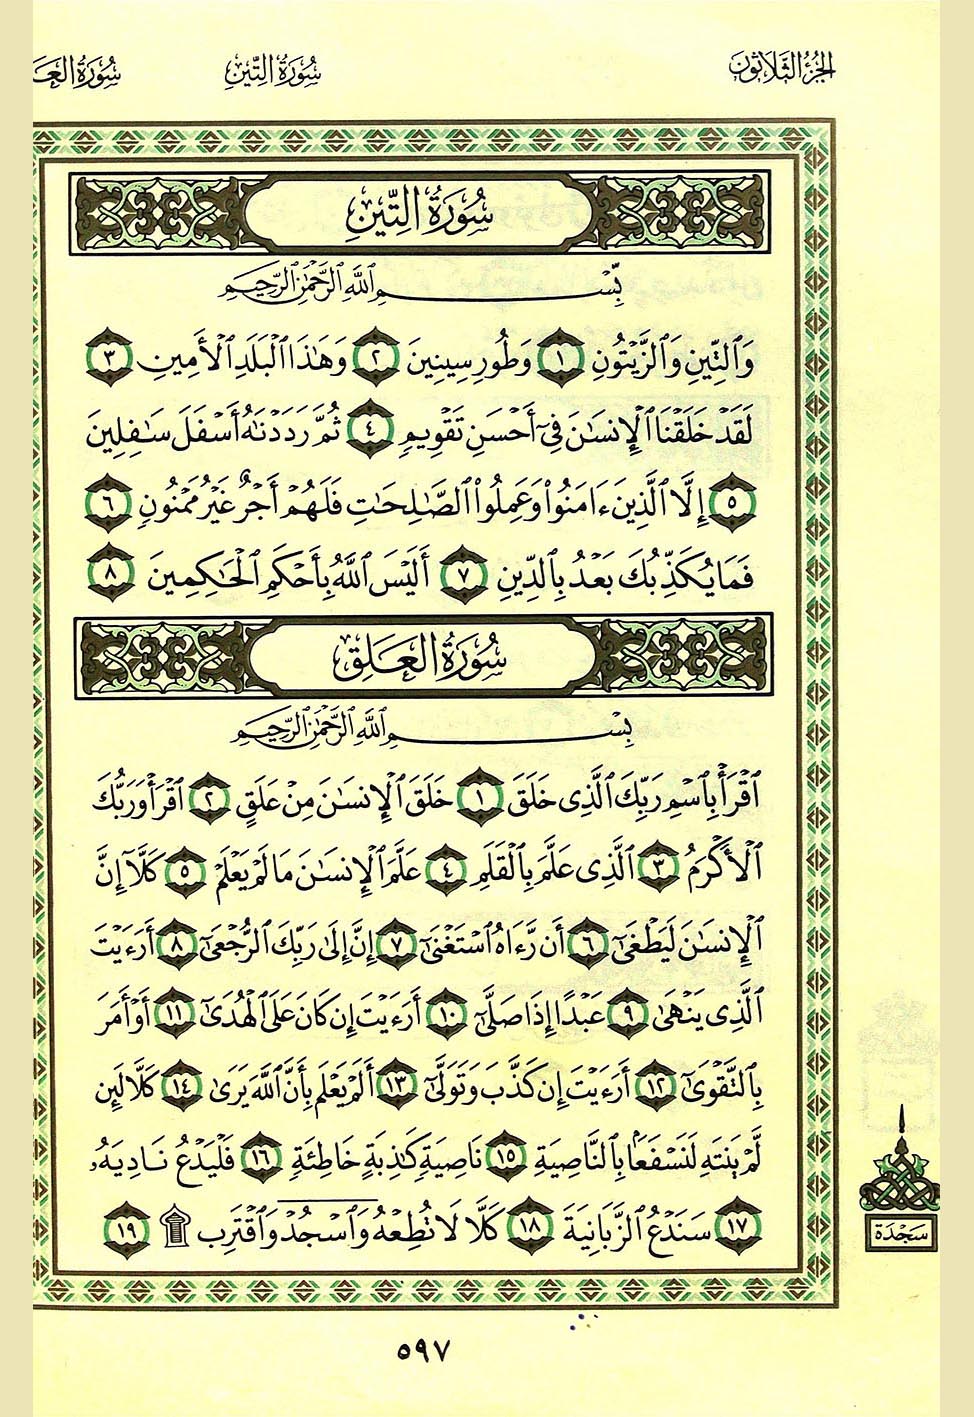 الجزء الثلاثون سورة التين سورة العَـ
سُورَةُ التِّينِ
بِسْمِ ٱللَّهِ ٱلرَّحْمَٰنِ ٱلرَّحِيمِ
وَٱلتِّينِ وَٱلزَّيْتُونِ ١ وَطُورِ سِينِينَ ٢ وَهَٰذَا ٱلْبَلَدِ ٱلْأَمِينِ ٣
لَقَدْ خَلَقْنَا ٱلْإِنسَٰنَ فِىٓ أَحْسَنِ تَقْوِيمٍ ٤ ثُمَّ رَدَدْنَٰهُ أَسْفَلَ سَٰفِلِينَ
٥ إِلَّا ٱلَّذِينَ ءَامَنُوا۟ وَعَمِلُوا۟ ٱلصَّٰلِحَٰتِ فَلَهُمْ أَجْرٌ غَيْرُ مَمْنُونٍ ٦
فَمَا يُكَذِّبُكَ بَعْدُ بِٱلدِّينِ ٧ أَلَيْسَ ٱللَّهُ بِأَحْكَمِ ٱلْحَٰكِمِينَ ٨
سُورَةُ العَلَقِ
بِسْمِ ٱللَّهِ ٱلرَّحْمَٰنِ ٱلرَّحِيمِ
ٱقْرَأْ بِٱسْمِ رَبِّكَ ٱلَّذِى خَلَقَ ١ خَلَقَ ٱلْإِنسَٰنَ مِنْ عَلَقٍ ٢ ٱقْرَأْ وَرَبُّكَ
ٱلْأَكْرَمُ ٣ ٱلَّذِى عَلَّمَ بِٱلْقَلَمِ ٤ عَلَّمَ ٱلْإِنسَٰنَ مَا لَمْ يَعْلَمْ ٥ كَلَّآ إِنَّ
ٱلْإِنسَٰنَ لَيَطْغَىٰٓ ٦ أَن رَّءَاهُ ٱسْتَغْنَىٰٓ ٧ إِنَّ إِلَىٰ رَبِّكَ ٱلرُّجْعَىٰٓ ٨ أَرَءَيْتَ
ٱلَّذِى يَنْهَىٰ ٩ عَبْدًا إِذَا صَلَّىٰٓ ١٠ أَرَءَيْتَ إِن كَانَ عَلَى ٱلْهُدَىٰٓ ١١ أَوْ أَمَرَ
بِٱلتَّقْوَىٰٓ ١٢ أَرَءَيْتَ إِن كَذَّبَ وَتَوَلَّىٰٓ ١٣ أَلَمْ يَعْلَم بِأَنَّ ٱللَّهَ يَرَىٰ ١٤ كَلَّا لَئِن
لَّمْ يَنتَهِ لَنَسْفَعًۢا بِٱلنَّاصِيَةِ ١٥ نَاصِيَةٍ كَٰذِبَةٍ خَاطِئَةٍ ١٦ فَلْيَدْعُ نَادِيَهُۥ
١٧ سَنَدْعُ ٱلزَّبَانِيَةَ ١٨ كَلَّا لَا تُطِعْهُ وَٱسْجُدْ وَٱقْتَرِب ۩ ١٩
سَجْدَة
٥٩٧